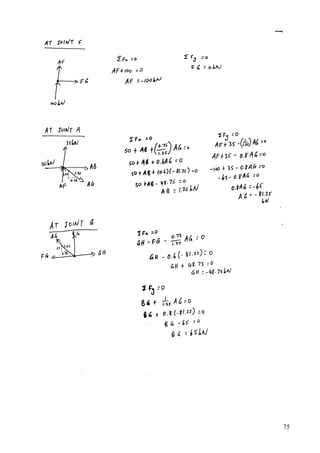 AT JOINT F
AF
FG
100 kN
ΣFx = 0
AF + 100 = 0
AF = -100 kN
ΣFy = 0
FG = 0 kN
AT JOINT A
35 kN
50 kN
AB
AF
AG
ΣFx = 0
50 + AB + (0.75/1.25) AG = 0
50 + AB + 0.6AG = 0
50 + AB + (0.6)(-81.25) = 0
50 + AB - 48.75 = 0
AB = 1.25 kN
ΣFy = 0
AF + 35 - (1/1.25) AG = 0
AF + 35 - 0.8AG = 0
-100 + 35 - 0.8AG = 0
-65 - 0.8AG = 0
0.8AG = -65
AG = -81.25 kN
AT JOINT G
AG
BG
FG
GH
ΣFx = 0
GH - FG - 0.75/1.25 AG = 0
GH - 0.6(-81.25) = 0
GH + 48.75 = 0
GH = -48.75 kN
ΣFy = 0
BG + 1/1.25 AG = 0
BG + 0.8(-81.25) = 0
BG - 65 = 0
BG = 65 kN
75